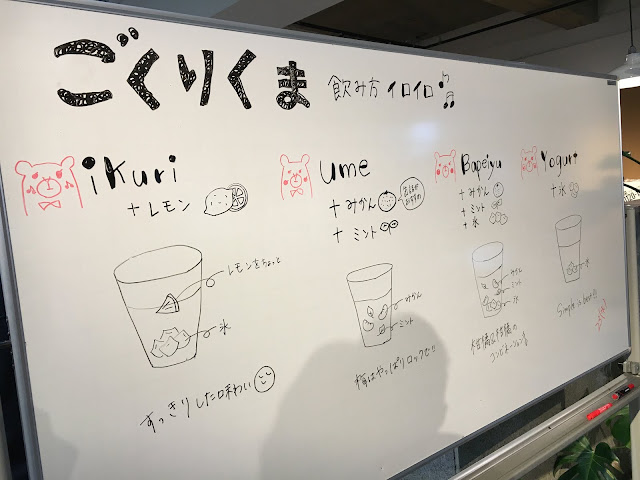 ごくりくま 飲み方 イロイロ♪
ikuri
+ レモン
レモンをちょっと
氷
すっきりした味わい
ume
+ みかん
+ ミント
みかん
ミント
梅はやっぱりロックで!!
Bapeiyu
+ みかん
+ ミント
+ 氷
みかん
ミント
氷
柑橘&柑橘の
コンビネーション
Yoguri
+ 氷
氷
Simple is best!!